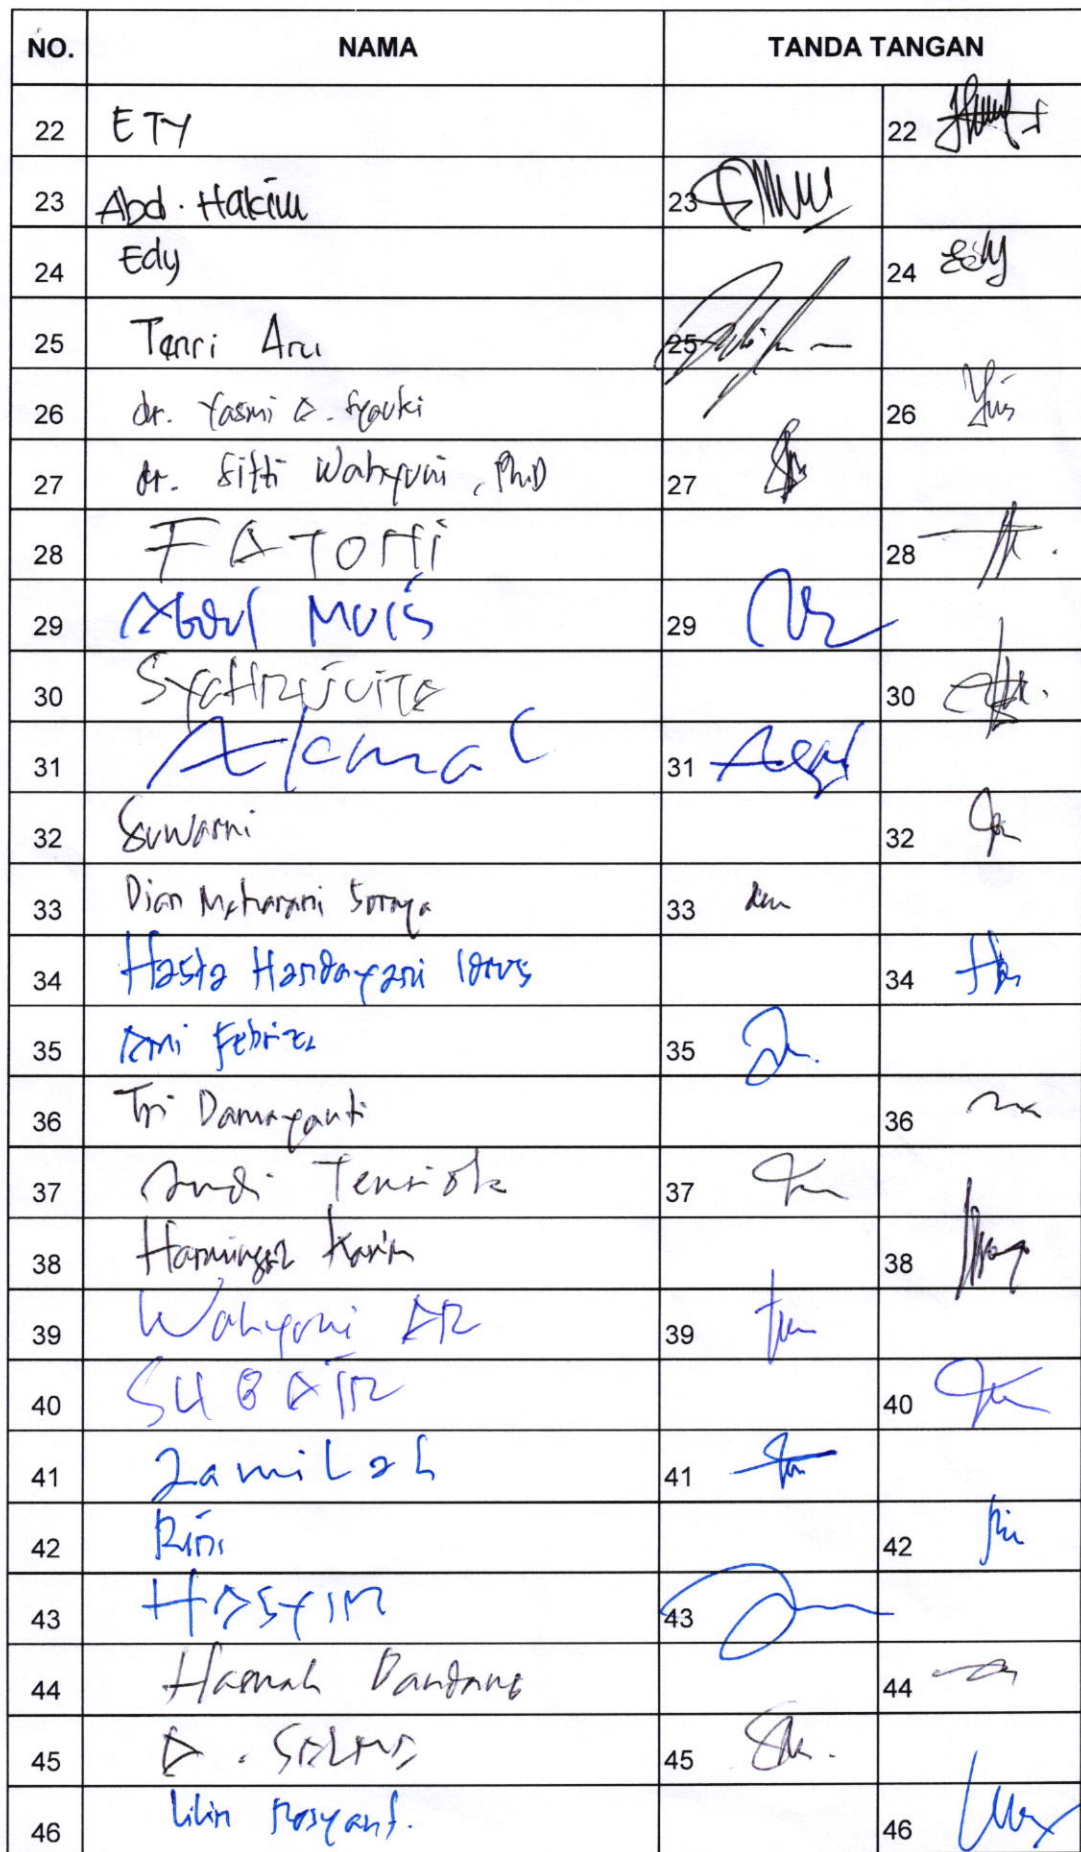 NO. NAMA TANDA TANGAN
22 ETY 22
23 Abd. Hakim 23
24 Edy 24 Edy
25 Tenri Aru 25
26 dr. Yasmi A. Syauki 26 Yus
27 dr. Sitti Wahyuni, Ph.D 27
28 FATONI 28
29 Abdul Muis 29
30 30
31 Akmal 31
32 Suwarni 32
33 Dian Maharani Soraya 33
34 Hasta Handayani Idrus 34
35 Ami Febriza 35
36 Tri Damayanti 36
37 Andi Tenriola 37
38 Karim 38
39 Wahyuni AR 39
40 SUBAIR 40
41 Jamilah 41
42 Rini 42
43 HASYIM 43
44 Hasnah Dandang 44
45 A. SALMA 45
46 Lilin Rosyanti. 46